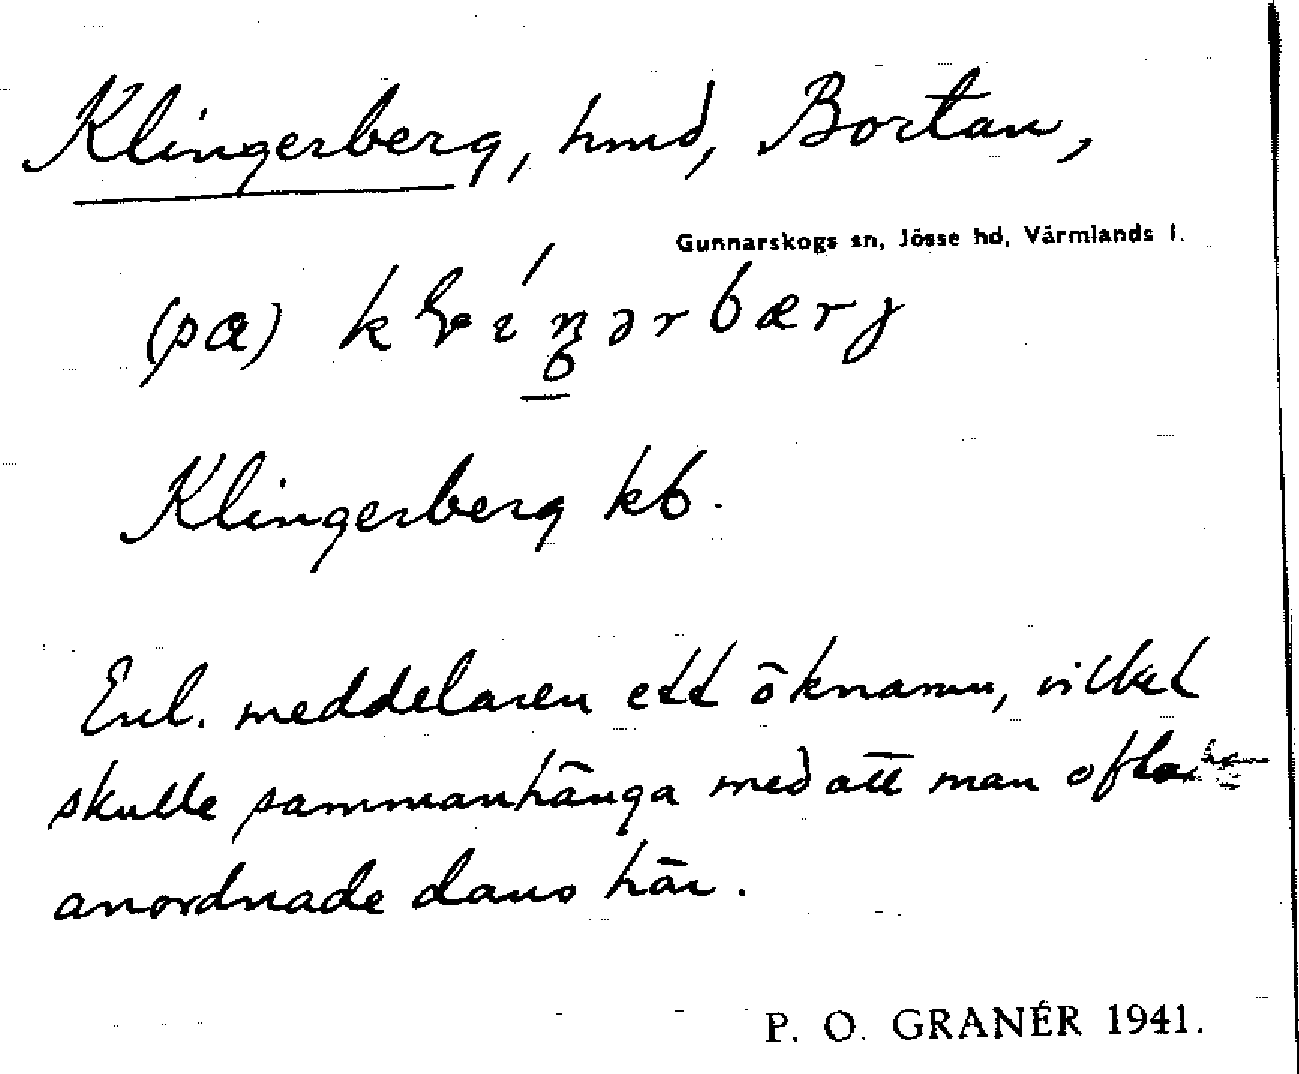 Klingerberg, hmd, Bortan,
Gunnarskogs sn, Jösse hd, Värmlands l.
(pæ)
Klingerberg kb.
Enl. meddelaren ett öknamn, vilket
skulle sammanhänga med att man ofta
anordnade dans här.
P. O. GRANÉR 1941.